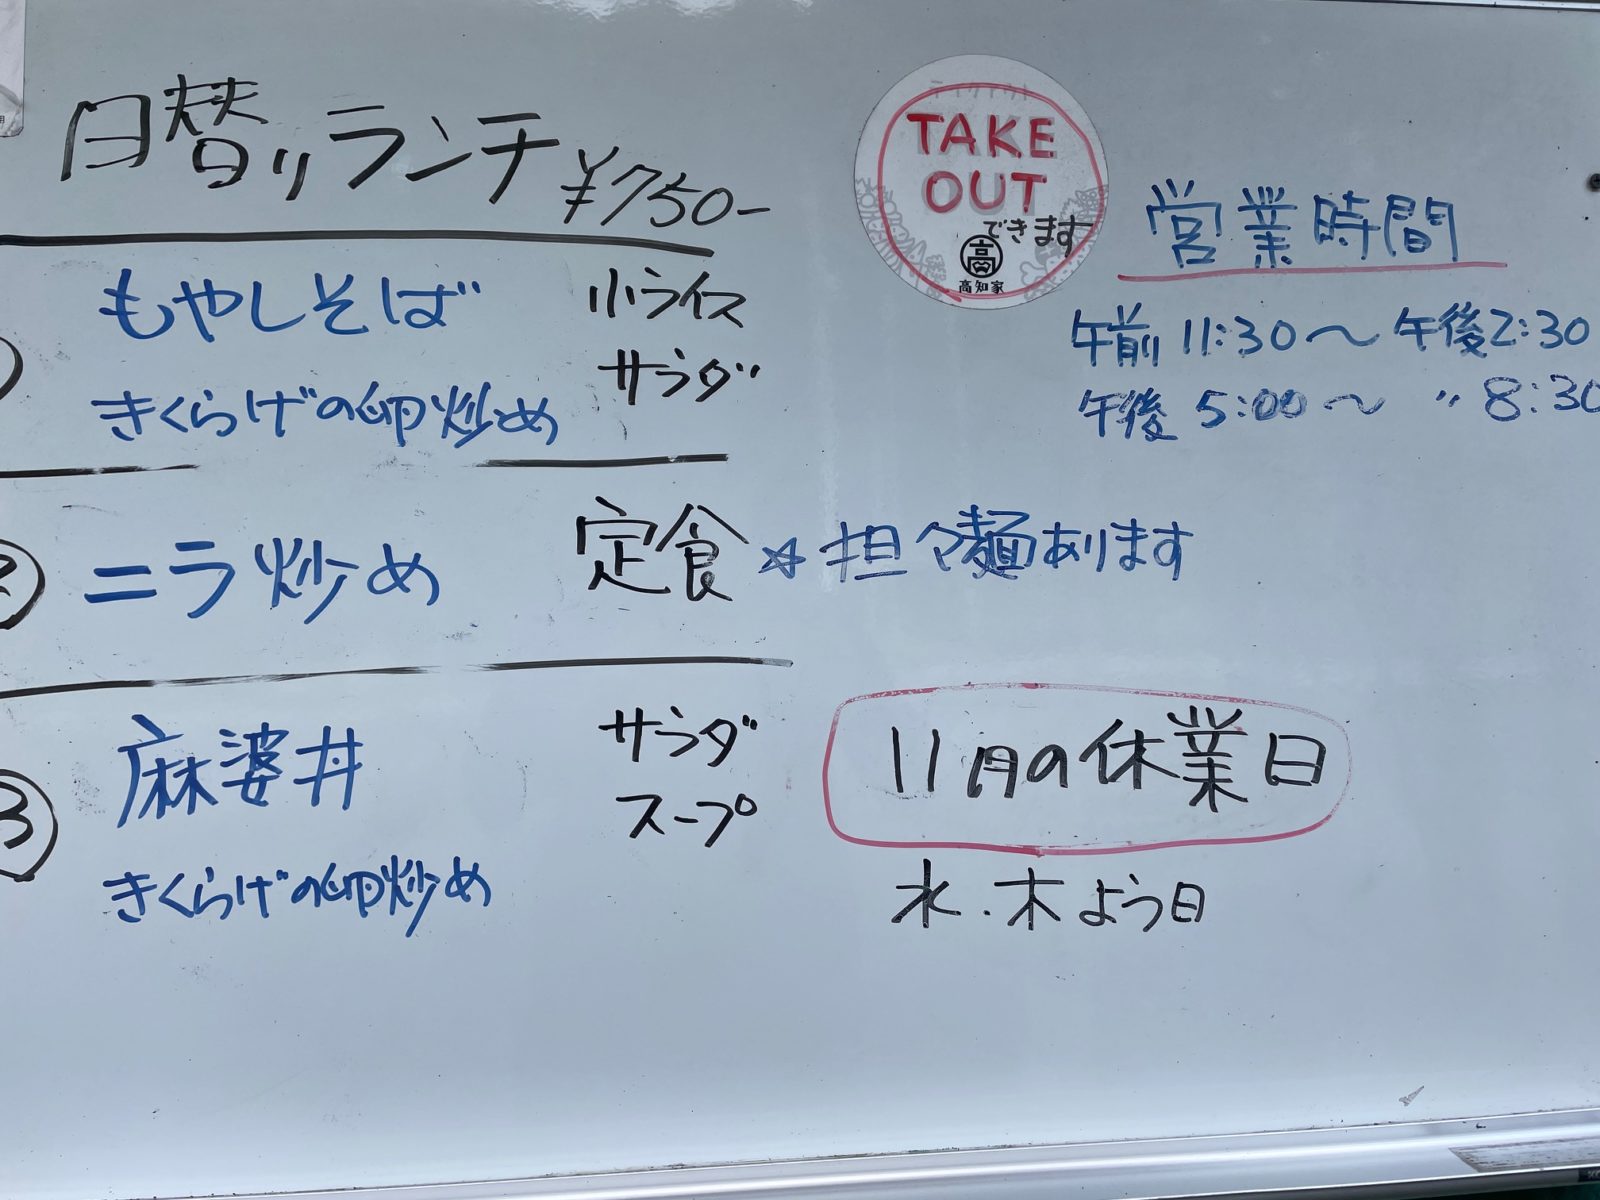 日替りランチ ¥750-
もやしそば 小ライス
きくらげの卵炒め サラダ
② ニラ炒め 定食
☆担々麺あります
③ 麻婆丼 サラダ
スープ
きくらげの卵炒め
TAKE
OUT
できます
高
高知家
営業時間
午前 11:30〜午後2:30
午後 5:00〜 〃 8:30
11月の休業日
水・木よう日